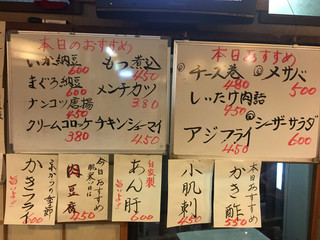 本日のおすすめ
いか納豆
600
まぐろ納豆
600
ナンコツ唐揚
450
クリームコロッケ
380
もつ煮込
450
メンチカツ
380
チキンシューマイ
450
本日のおすすめ
チーズ巻
480
しいたけ肉詰
450
アジフライ
450
メサバ
500
シーザーサラダ
600
かきフライ
肉豆腐
450
自家製
あん肝
600
小肌刺
450
本日おすすめ
かき酢
550